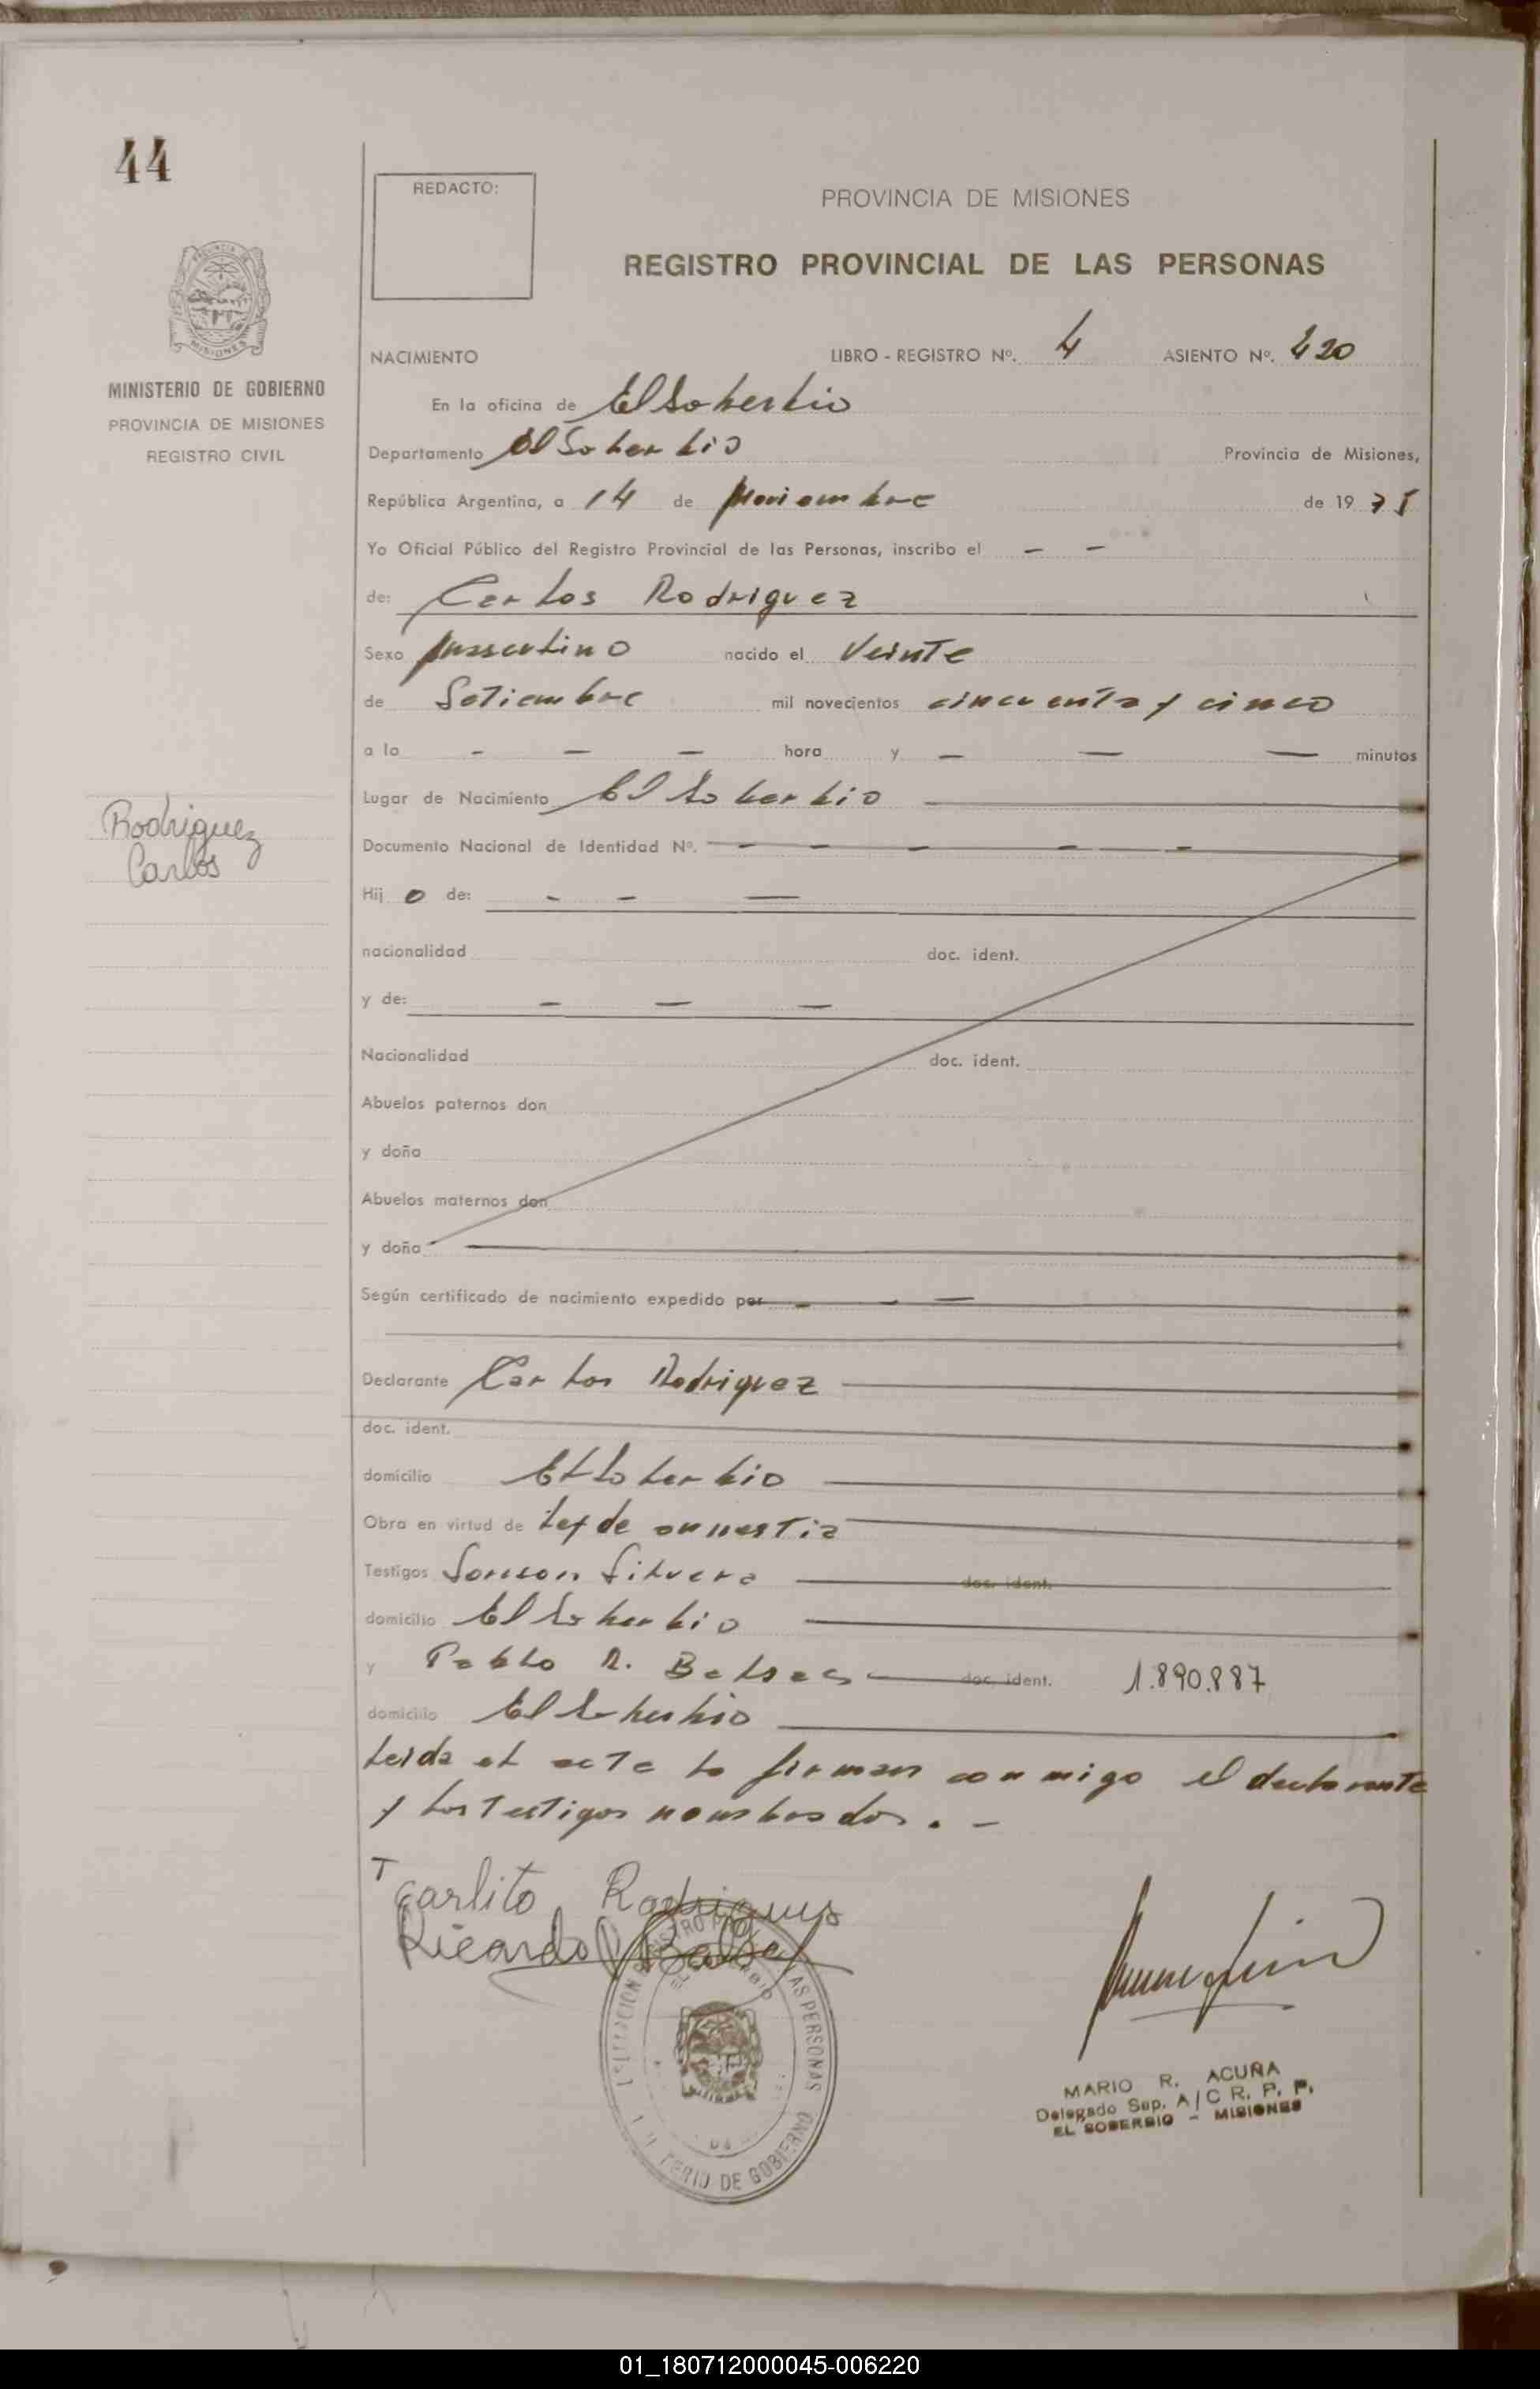 44
REDACTO:
PROVINCIA DE MISIONES
REGISTRO PROVINCIAL DE LAS PERSONAS
MISIONES
MINISTERIO DE GOBIERNO
PROVINCIA DE MISIONES
REGISTRO CIVIL
NACIMIENTO LIBRO - REGISTRO Nº. 4 ASIENTO Nº. 420
En la oficina de El Soberbio
Departamento El Soberbio Provincia de Misiones,
República Argentina, a 14 de Noviembre de 1975
Yo Oficial Público del Registro Provincial de las Personas, inscribo el - -
de: Carlos Rodriguez
Sexo masculino nacido el Veinte
de Setiembre mil novecientos cincuenta y cinco
a la - - - hora y - - - minutos
Lugar de Nacimiento El Soberbio
Rodriguez
Carlos
Documento Nacional de Identidad Nº. - - - - -
Hij o de: - - -
nacionalidad doc. ident.
y de: - - -
Nacionalidad doc. ident.
Abuelos paternos don
y doña
Abuelos maternos don
y doña
Según certificado de nacimiento expedido por - - -
Declarante Carlos Rodriguez
doc. ident.
domicilio El Soberbio
Obra en virtud de Ley de amnestia
Testigos Silvera doc. ident.
domicilio El Soberbio
y Pablo R. doc. ident. 1.890.887
domicilio El Soberbio
Leida el acta lo firman conmigo el declarante
y los testigos nombrados. -
T
Carlito Rodriguis
Ricardo
AS PERSONAS
ERIO DE GOBIERNO
MARIO R. ACUÑA
Delegado Sup. A/C R. P. P.
EL SOBERBIO - MISIONES
01_180712000045-006220